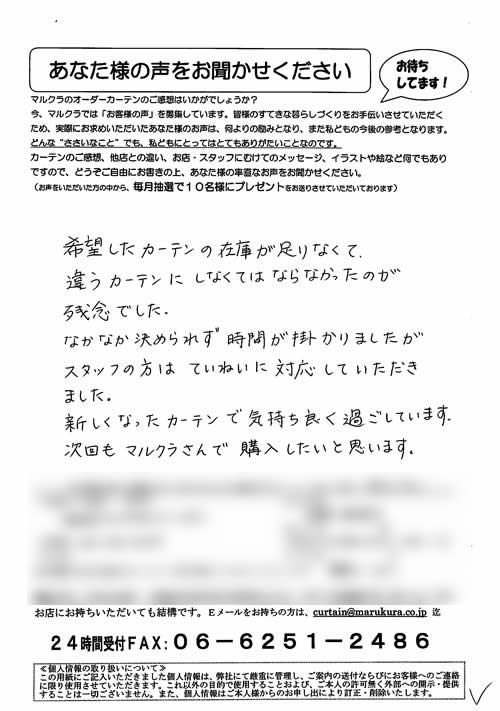 あなた様の声をお聞かせください
お待ち
してます!
マルクラのオーダーカーテンのご感想はいかがでしょうか?
今、マルクラでは「お客様の声」を募集しています。皆様のすてきな暮らしづくりをお手伝いさせていただく
ため、実際にお求めいただいたあなた様のお声は、何よりの励みとなり、また私どもの今後の参考となります。
どんな“ささいなこと”でも、私どもにとってはとてもありがたいことなのです。
カーテンのご感想、他店との違い、お店・スタッフにむけてのメッセージ、イラストや絵など何でもあり
ですので、どうぞご自由にお書きの上、あなた様の率直なお声をお聞かせください。
(お声をいただいた方の中から、毎月抽選で10名様にプレゼントをお送りさせていただいております)
希望したカーテンの在庫が足りなくて、
違うカーテンにしなくてはならなかったのが
残念でした。
なかなか決められず時間が掛かりましたが
スタッフの方はていねいに対応していただき
ました。
新しくなったカーテンで気持ち良く過ごしています。
次回もマルクラさんで購入したいと思います。
お店にお持ちいただいても結構です。Eメールをお持ちの方は、curtain@marukura.co.jp 迄
24時間受付FAX:06-6251-2486
≪個人情報の取り扱いについて≫
この用紙にご記入いただきました個人情報は、弊社にて厳重に管理し、ご案内の送付ならびにお客様へのご連絡
に限り使用させていただきます。これ以外の目的で使用することおよび、ご本人の許可無く外部への開示・提供
することは一切ございません。また、個人情報はご本人様からのお申し出により訂正・削除いたします。